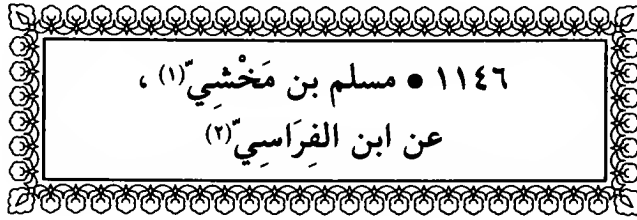 ١١٤٦ ● مسلم بن مَخْشِيّ (١) ،
عن ابن الفِرَاسِيّ (٢)